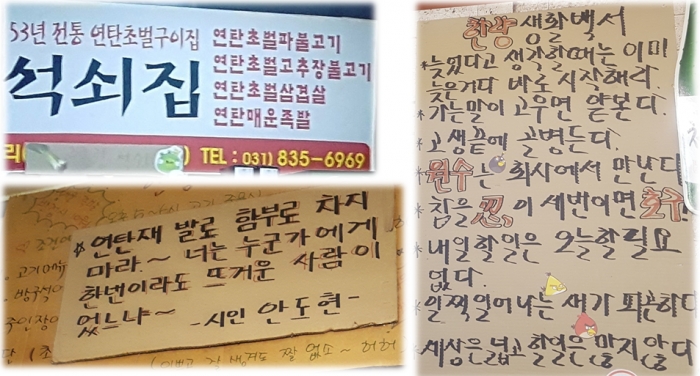 53년 전통 연탄초벌구이집
석쇠집
연탄초벌파불고기
연탄초벌고추장불고기
연탄초벌삼겹살
연탄매운족발
TEL : 031) 835-6969
*연탄재 발로 함부로 차지
마라.~ 너는 누군가에게
한번이라도 뜨거운 사람이
었느냐~ -시인 안도현-
한량 생활백서
*늦었다고 생각할때는 이미
늦은거다 바로 시작해라
*가는말이 고우면 얕본다.
*고생끝에 골병든다.
*원수는 회사에서 만난다
*참을忍이 세번이면 호구
*내일할일은 오늘할필요
없다.
*일찍일어나는 새가 피곤하다
*세상은넓고 할일은 많지 않다